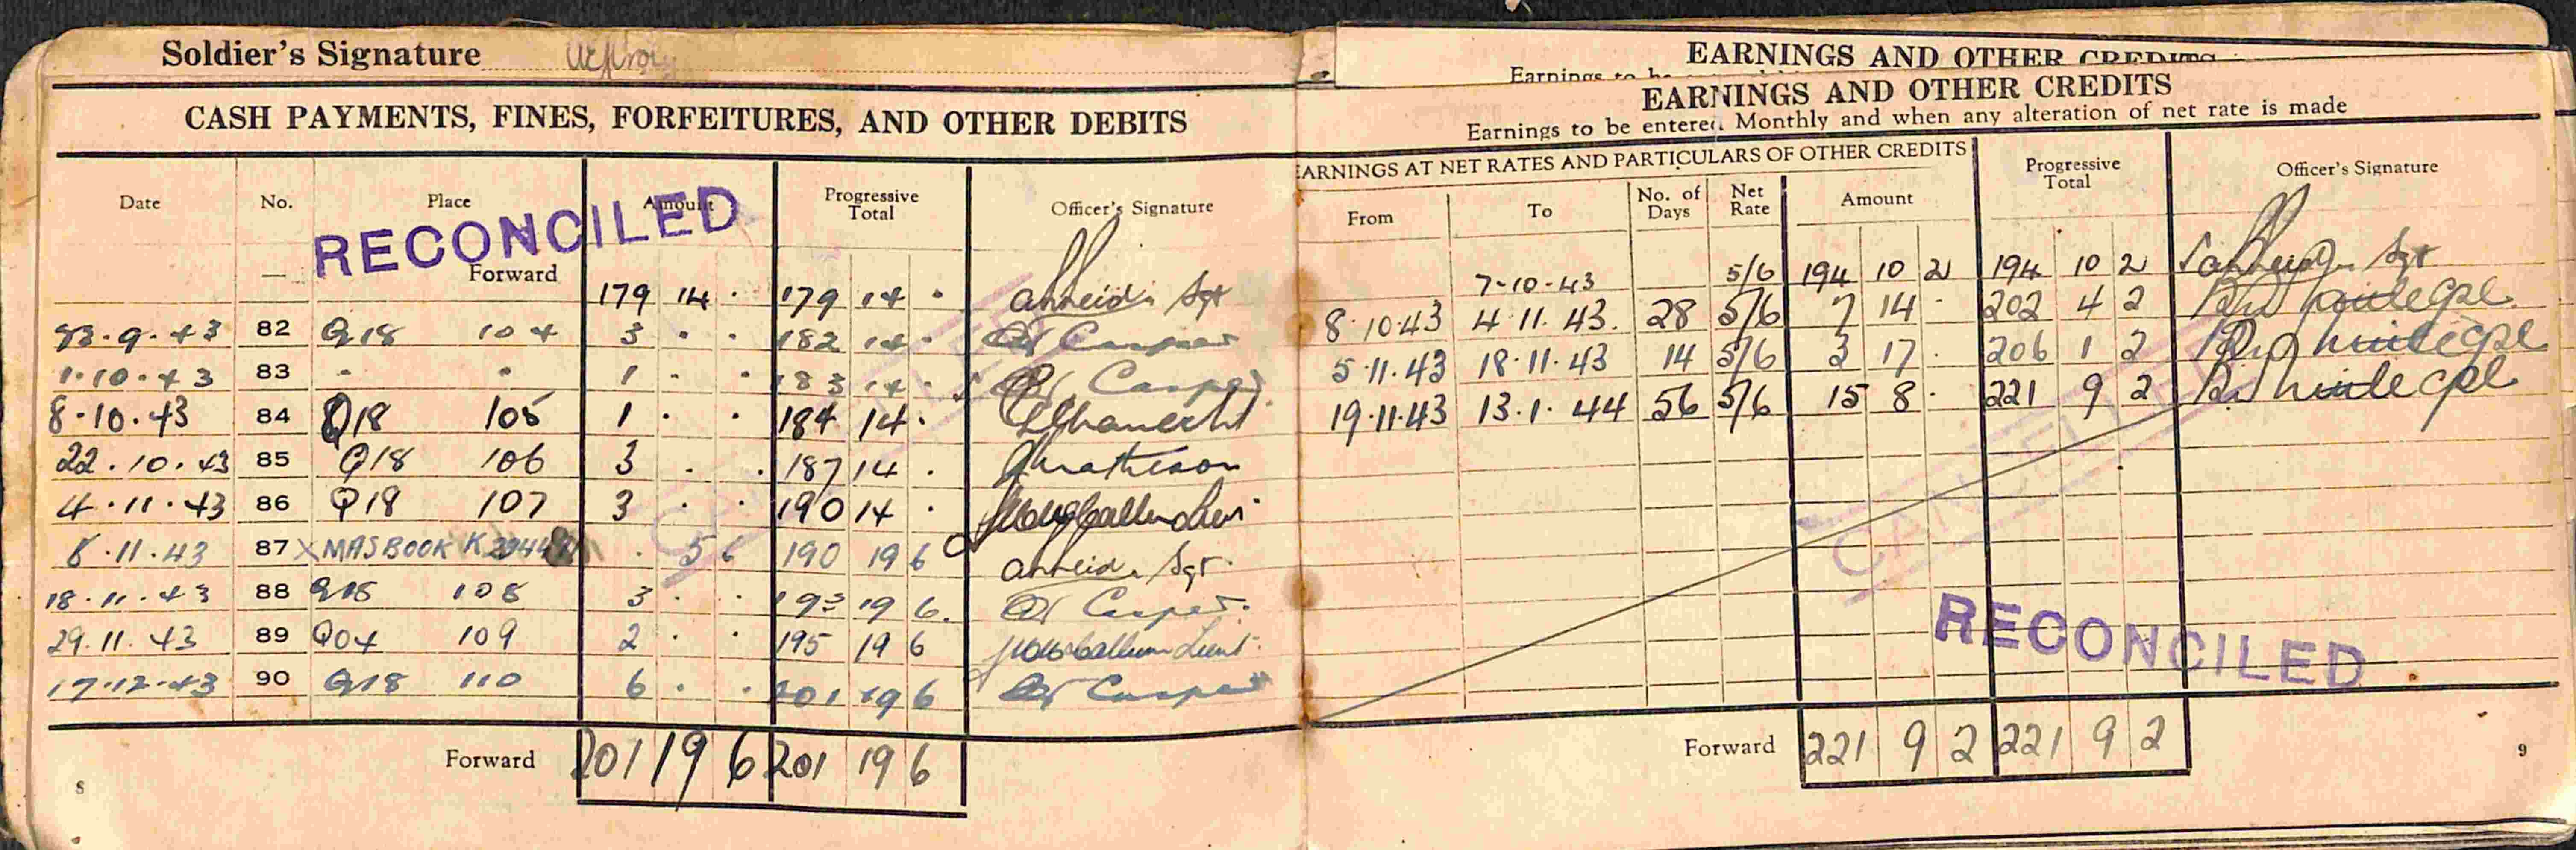 Soldier's Signature
CASH PAYMENTS, FINES, FORFEITURES, AND OTHER DEBITS
Date No. Place Amount Progressive Total Officer's Signature
RECONCILED
Forward 179 14 . 179 14 . Sgt
23.9.43 82 Q18 104 3 . . 182 14 . Casper
1.10.43 83 " " 1 . . 183 14 . Casper
8.10.43 84 Q18 105 1 . . 184 14 .
22.10.43 85 Q18 106 3 . . 187 14 . Matheson
4.11.43 86 Q18 107 3 . . 190 14 .
8.11.43 87 XMASBOOK . 5 6 190 19 6 Sgt.
18.11.43 88 Q18 108 3 . . 193 19 6. Casper.
29.11.43 89 Q04 109 2 . . 195 19 6 Lieut.
17.12.43 90 Q18 110 6 . . 201 19 6 Casper
Forward 201 19 6 201 19 6
8
EARNINGS AND OTHER CREDITS
Earnings to be
EARNINGS AND OTHER CREDITS
Earnings to be entered Monthly and when any alteration of net rate is made
EARNINGS AT NET RATES AND PARTICULARS OF OTHER CREDITS Progressive Total Officer's Signature
From To No. of Days Net Rate Amount
7-10-43 5/6 194 10 2 194 10 2 Sgt
8.10.43 4.11.43. 28 5/6 7 14 - 202 4 2 Cpl
5.11.43 18.11.43 14 5/6 3 17 . 206 1 2 Cpl
19.11.43 13.1.44 56 5/6 15 8 . 221 9 2 Cpl
CANCELLED
RECONCILED
Forward 221 9 2 221 9 2
9